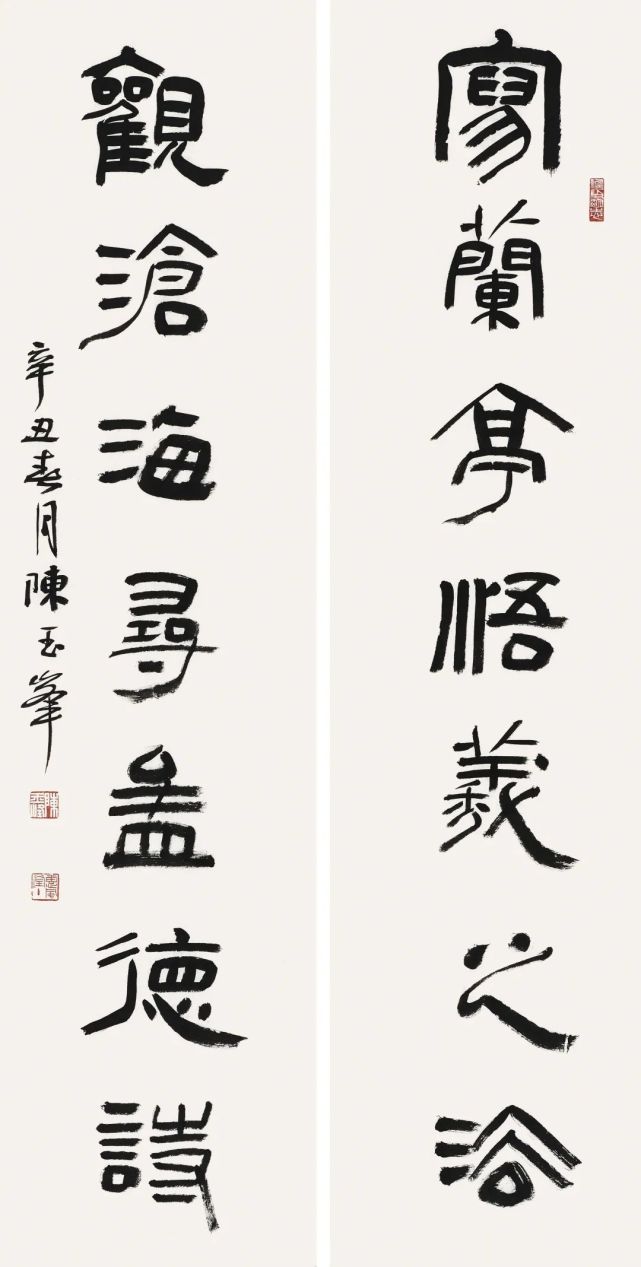 寫蘭亭悟羲之浴
觀滄海尋孟德詩
辛丑春月陳玉峯